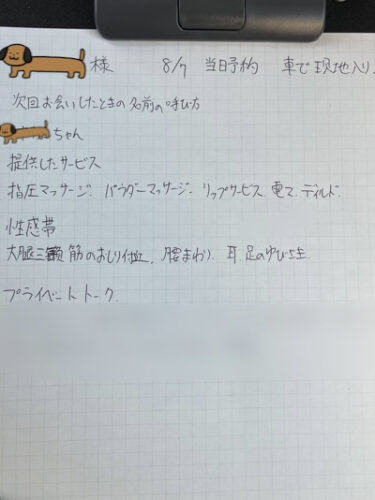 様 8/7 当日予約 車で現地入り.
次回お会いしたときの名前の呼び方
ちゃん
提供したサービス
指圧マッサージ. パウダーマッサージ. リップサービス 電マ. ディルド.
性感帯
大腿三頭筋のおしり付近. 腰まわり. 耳. 足のゆび
プライベートトーク.